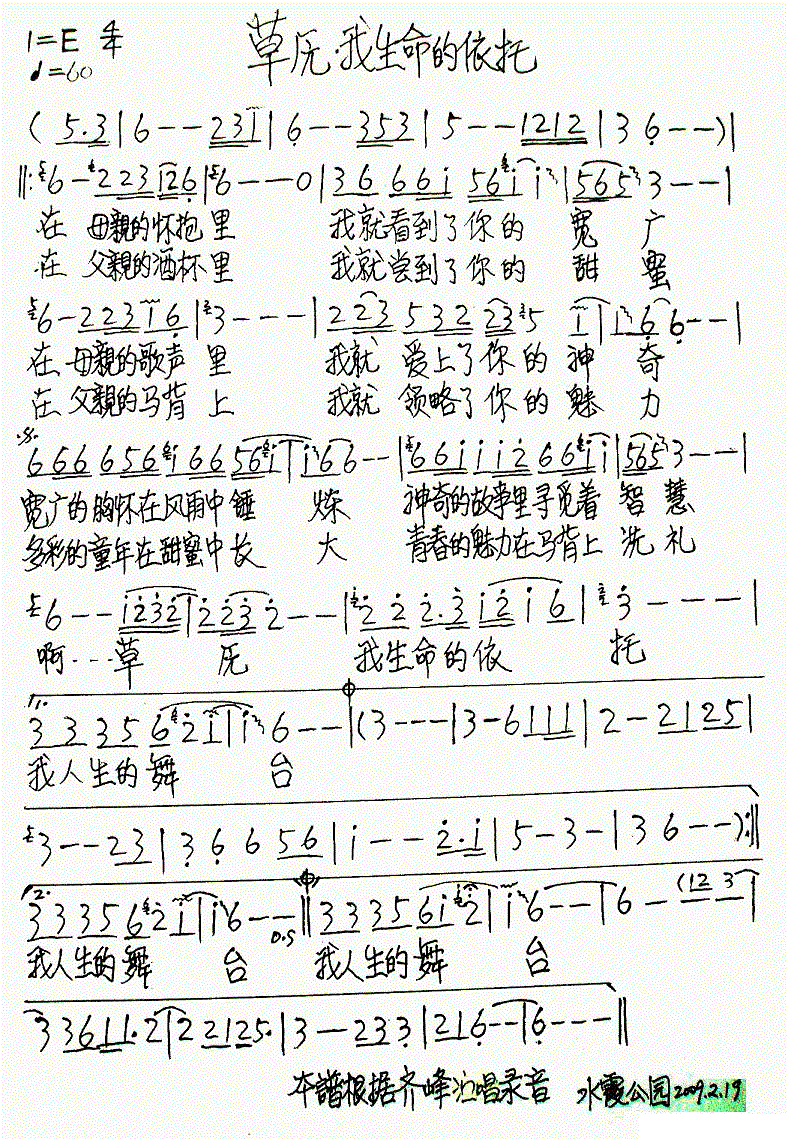 1=E 4/4
♩=60
草原·我生命的依托
( 5.3 | 6 - - 231 | 6 - - 353 | 5 - - 1212 | 3 6 - - ) |
||: 6 - 223 126 | 6 - - - 0 | 36 661 56 1 1 | 565 3 - - |
在 母亲的怀抱里 我就看到了你的 宽 广
在 父亲的酒杯里 我就尝到了你的 甜 蜜
6 - 223 1 6 | 3 - - - | 223 532 23 5 1 | 1 6 6 - - |
在 母亲的歌声 里 我就 爱上了你的 神 奇
在 父亲的马背 上 我就 领略了你的 魅 力
6 66 656 1 66 56 1 | 1 6 6 - - | 661 112 66 1 1 | 565 3 - - |
宽广的胸怀在风雨中锤 炼 神奇的故事里寻觅着 智 慧
多彩的童年在甜蜜中长 大 青春的魅力在马背上 洗 礼
6 - - 1232 | 2 23 2 - - | 2 2 2.3 12 1 6 | 3 - - - |
啊···草 原 我生命的依 托
1. 3 3 35 6 2 1 | 1 6 - - | (3 - - - | 3 - 6 111 | 2 - 2125 |
我人生的舞 台
3 - - 23 | 3 6 6 56 | 1 - - 2.1 | 5 - 3 - | 3 6 - - ) :||
2. 3 3 35 6 2 1 | 1 6 - - || 3 3 35 61 2 | 1 6 - - | 6 - (12 3 |
D.S
我人生的舞 台 我人生的舞 台
3 3611.2 | 2 2125. | 3 - - 233 | 216 - - | 6 - - - ||
本譜根据齐峰演唱录音 水霞公园2009.2.19